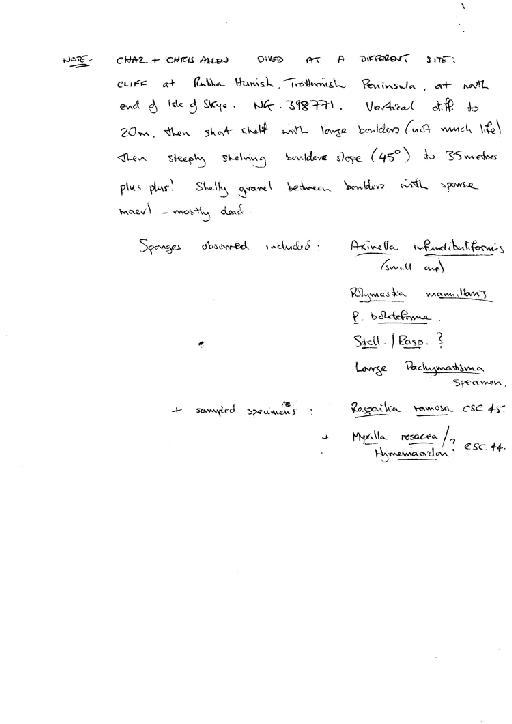 NOTE - CHAZ + CHRIS ALLEN DIVED AT A DIFFERENT SITE:
CLIFF at Rubha Hunish, Trotternish Peninsula, at north
end of Isle of Skye. NG. 398771. Vertical cliff to
20m, then short shelf with large boulders (not much life)
then steeply shelving boulder slope (45°) to 35 metres
plus plus! Shelly gravel between boulders with sparse
maerl - mostly dead.
Sponges observed included: Axinella infundibuliformis
(small one)
Polymastia mamillaris
P. boletiforme.
Stell. / Rasp. ?
Large Pachymatisma
Specimen.
+ sampled specimens: Raspailia ramosa CSC 45
+ Myxilla rosacea / ?
CSC 44.